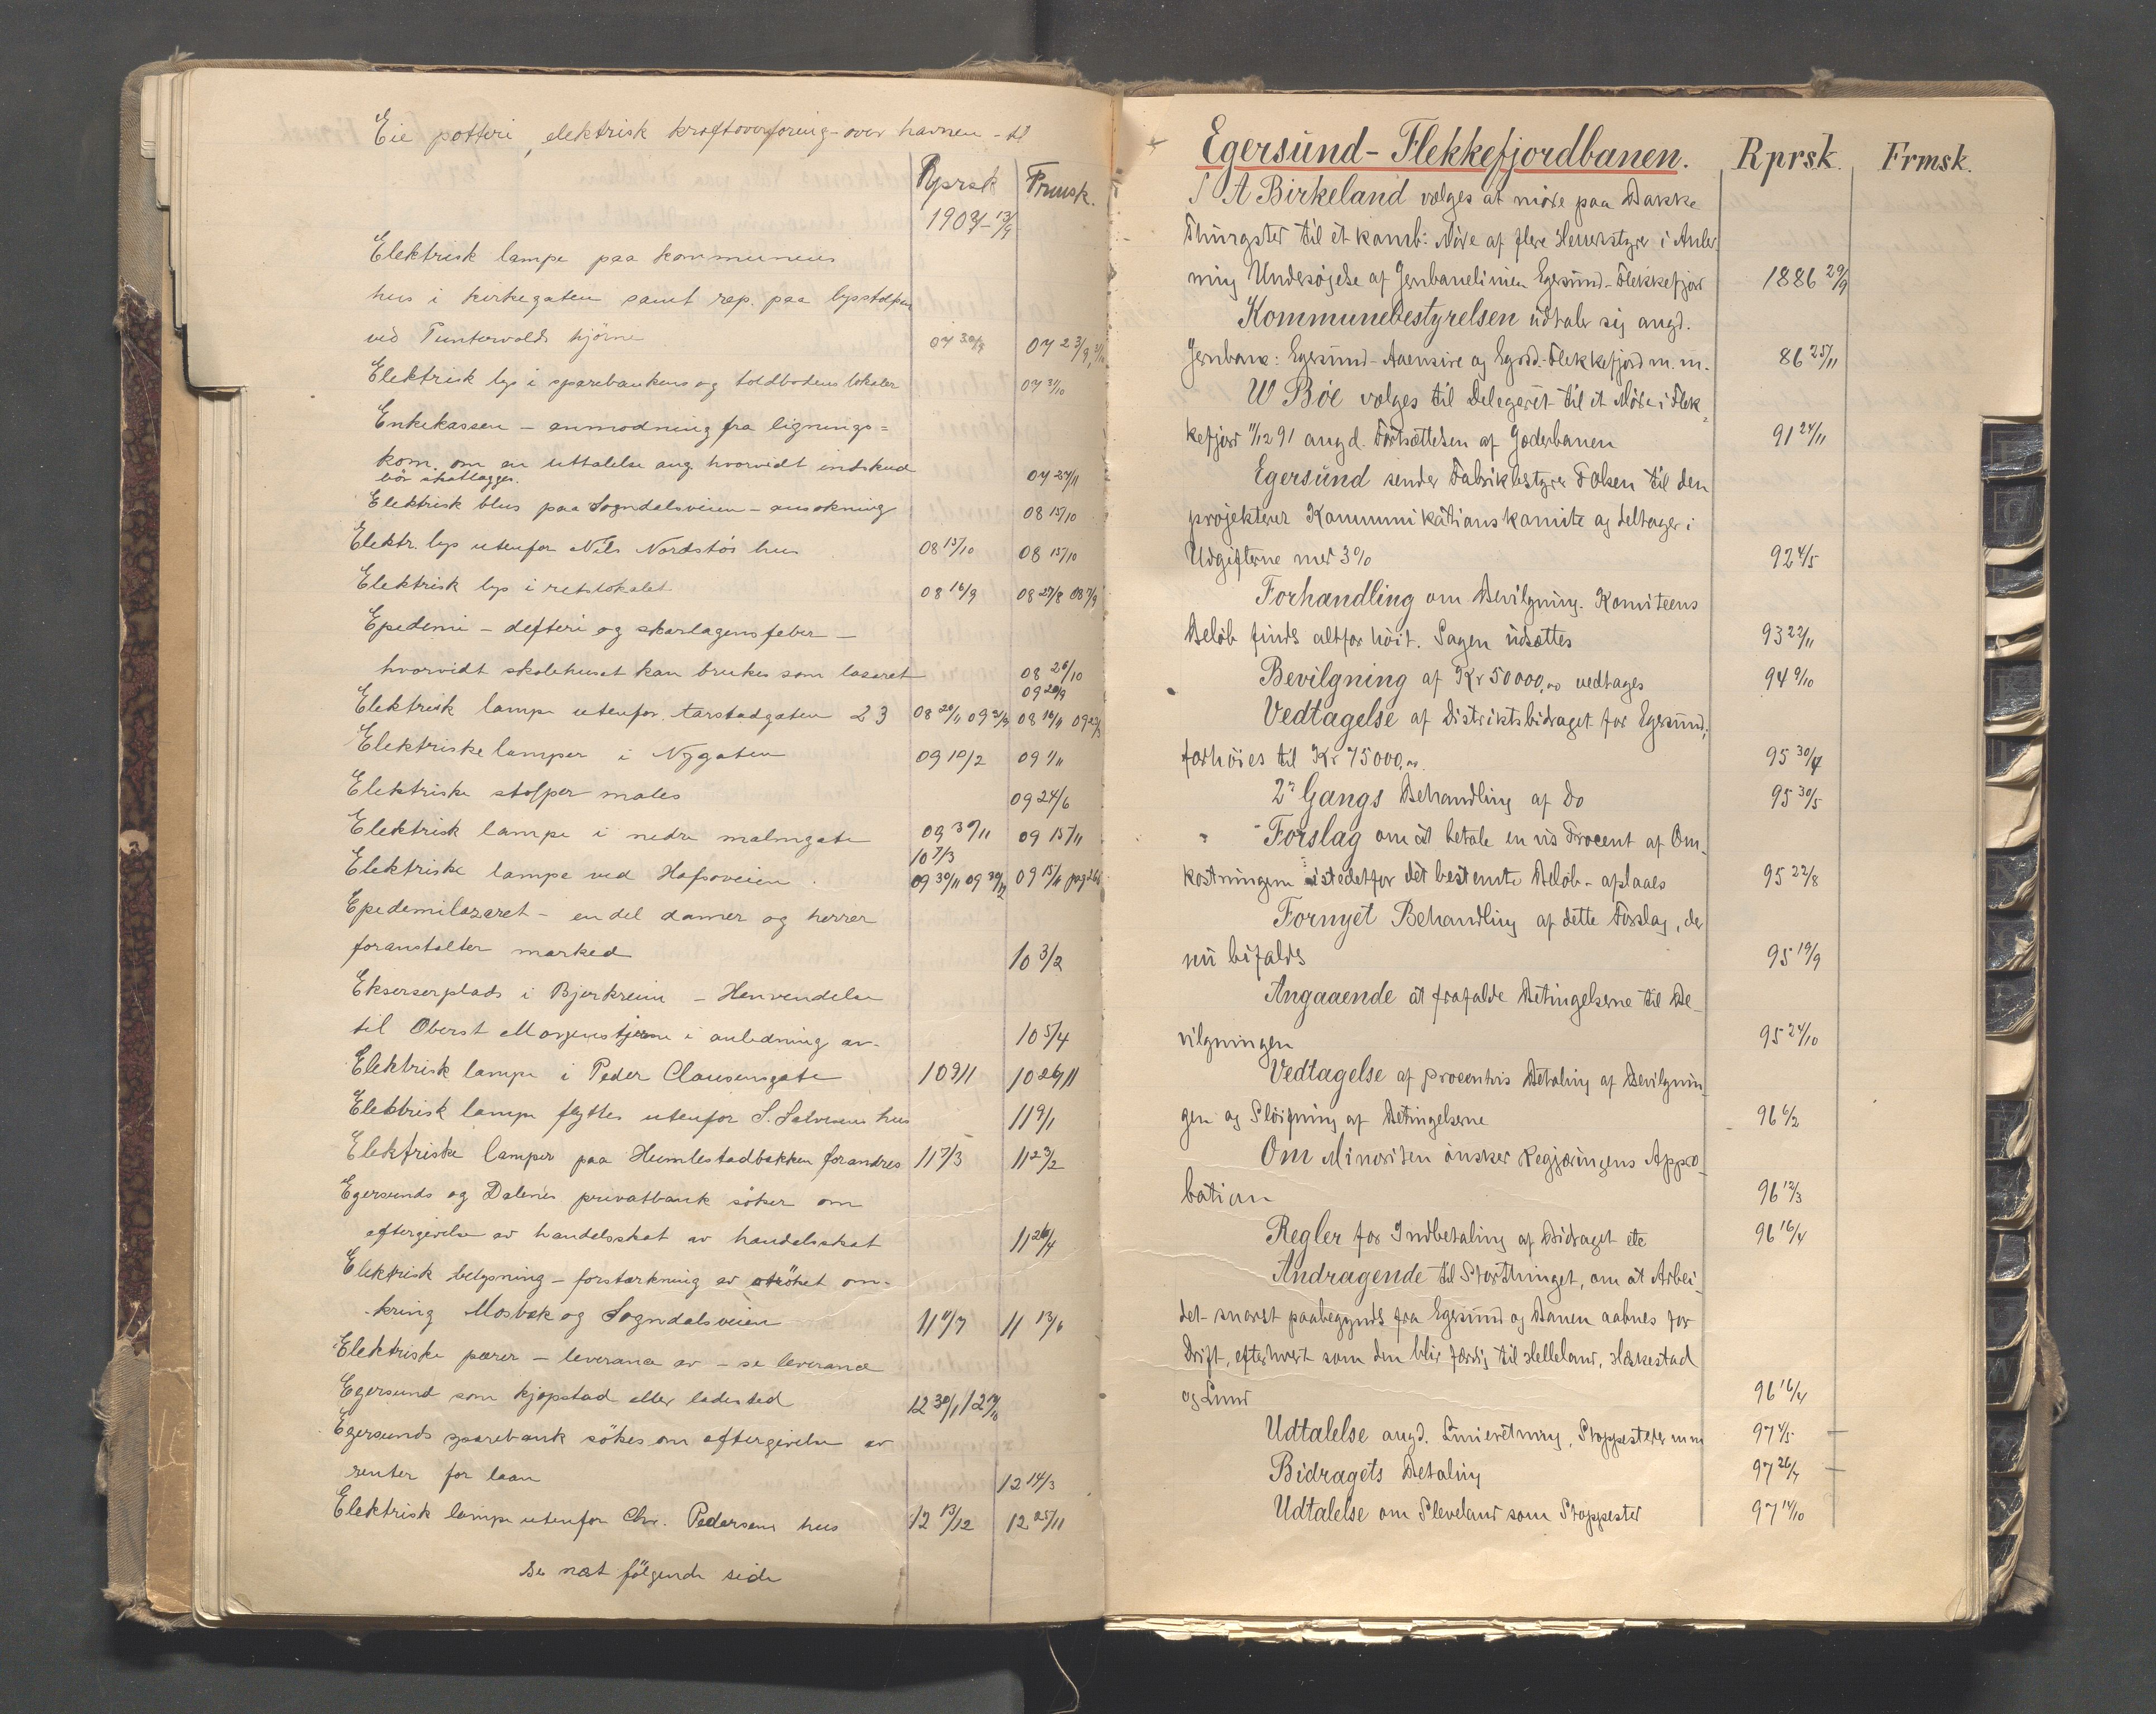 Eie potteri, elektrisk kraftoverføring over havnen - til
Rprsk Frmsk.
1907 - 13/9
Elektrisk lampe paa kommunens
hus i kirkegaten samt rep. paa lysstolpen
ved Puntervolds hjörne 07 30/9 07 23/9,
Elektrisk lys i sparebankens og toldbodens lokaler 07 31/10
Enkekassen - anmodning fra lignings=
kom. om en uttalelse ang hvorvidt indskud
bör skatlægges. 07 27/11
Elektrisk blus paa Sogndalsveien - ansøkning 08 15/10
Elektr. lys utenfor Nils Nordstös hus 08 15/10 08 15/10
Elektrisk lys i retslokalet 08 16/9 08 27/8 08 7/9
Epedemi - defteri og skarlagensfeber -
hvorvidt skolehuset kan brukes som lasaret 08 26/10
Elektrisk lampe utenfor Aarstadgaten 23 08 20/11
Elektriske lamper i Nygaten 09 10/2 09 1/11
Elektriske stolper males 09 24/6
Elektrisk lampe i nedre malmgate 09 30/11 09 15/11
10 7/3
Elektriske lampe ved Hafsøveien 09 30/11 09 15/11
Epedemilazaret - en del damer og herrer
foranstalter marked 10 3/2
Ekserserplads i Bjerkreim - Henvendelse
til Oberst Morgenstjerne i anledning av. 10 5/4
Elektrisk lampe i Peder Clausensgate 10 9/11 10 26/11
Elektrisk lampe flyttes utenfor S. Salvesens hus 11 9/1
Elektriske lamper paa Humlestadbakken forandres 11 7/3 11 23/2
Egersunds og Dalenes privatbank söker om
eftergivelse av handelsskat av handelsskat 11 26/4
Elektrisk belysning - forstærkning av strøket om-
kring Mosbæk og Sogndalsveien 11 13/6
Elektriske pærer - leverance av - se leverance
Egersund som kjøpstad eller ladested 12 30/1
Egersunds sparebank sökes om eftergivelse av
renter for laan 12 14/3
Elektrisk lampe utenfor Chr. Pedersens hus 12 13/12 12 25/11
Se næst fölgende side
Egersund-Flekkefjordbanen. Rprsk. Frmsk.
A Birkeland vælges at møde paa Bakke
Thingsted til et komb: Møde af flere Herredstyrer i Anled
ning Undersøgelse af Jernbanelinien Egersund-Flekkefjord 1886 29/9
Kommunebestyrelsen udtaler sig angd.
Jernbane: Egersund-Aaensire og Egsd.-Flekkefjord m.m. 86 25/11
W Böe vælges til Delegeret til et Møde i Flek
kefjord 11/12 91 angd. Fortsættelsen af Jæderbanen 91 24/11
Egersund sender Fabrikbestyrer F Olsen til den
projekterer Kommunikationskomite og deltager i
Udgifterne med 3% 92 4/5
Forhandling om Bevilgning. Komiteens
Beløb findes altfor höit. Sagen udsættes 93 22/11
Bevilgning af Kr 50000,00 vedtages 94 9/10
Vedtagelse af Distriktsbidraget for Egersund;
forhöies til Kr 75000,00. 95 30/4
2n Gangs Behandling af Do 95 30/5
Forslag om at betale en vis Procent af Om-
kostningerne istedetfor det bestemte Beløb - afslaaes 95 22/8
Fornyet Behandling af dette Forslag, der
nu bifaldes 95 19/9
Angaaende at frafalde Betingelserne til Be-
vilgningen 95 24/10
Vedtagelse af procentvis Betaling af Bevilgnin-
gen og Sløifning af Betingelserne 96 6/2
Om Minoriten ønsker Regjæringens Appro-
bation 96 12/3
Regler for Indbetaling af Bidraget etc 96 16/4
Andragende til Storthinget, om at Arbei-
det snarest paabegyndes fra Egersund og Banen aabnes for
Drift, efterhvert som den blir færdig til Helleland, Heskestad
og Lund 96 16/4
Udtalelse angd. Linieretning, Stoppesteder m m 97 4/5
Bidragets Betaling 97 26/7
Udtalelse om Sleveland som Stoppested 97 14/10